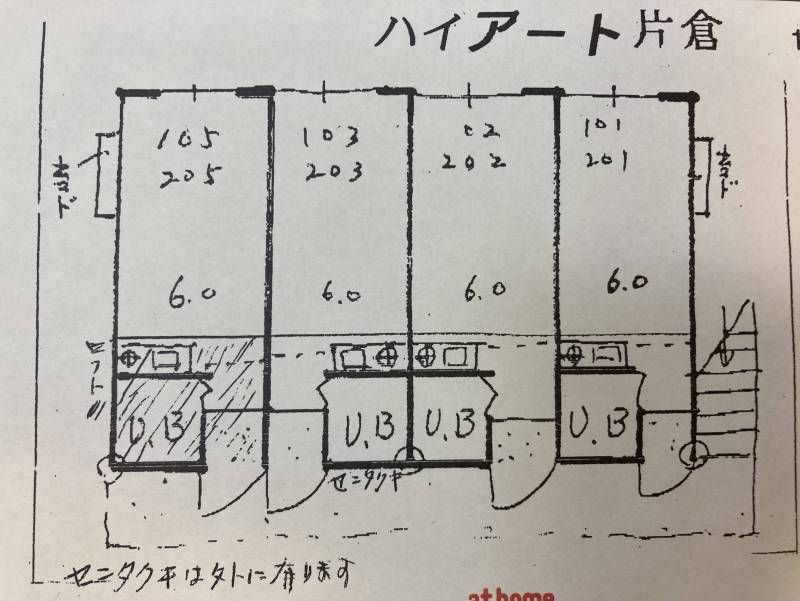 ハイアート片倉
105
205
103
203
02
202
101
201
6.0
6.0
6.0
6.0
U.B
U.B
U.B
U.B
センタクキ
センタクキは外に有ります
at home